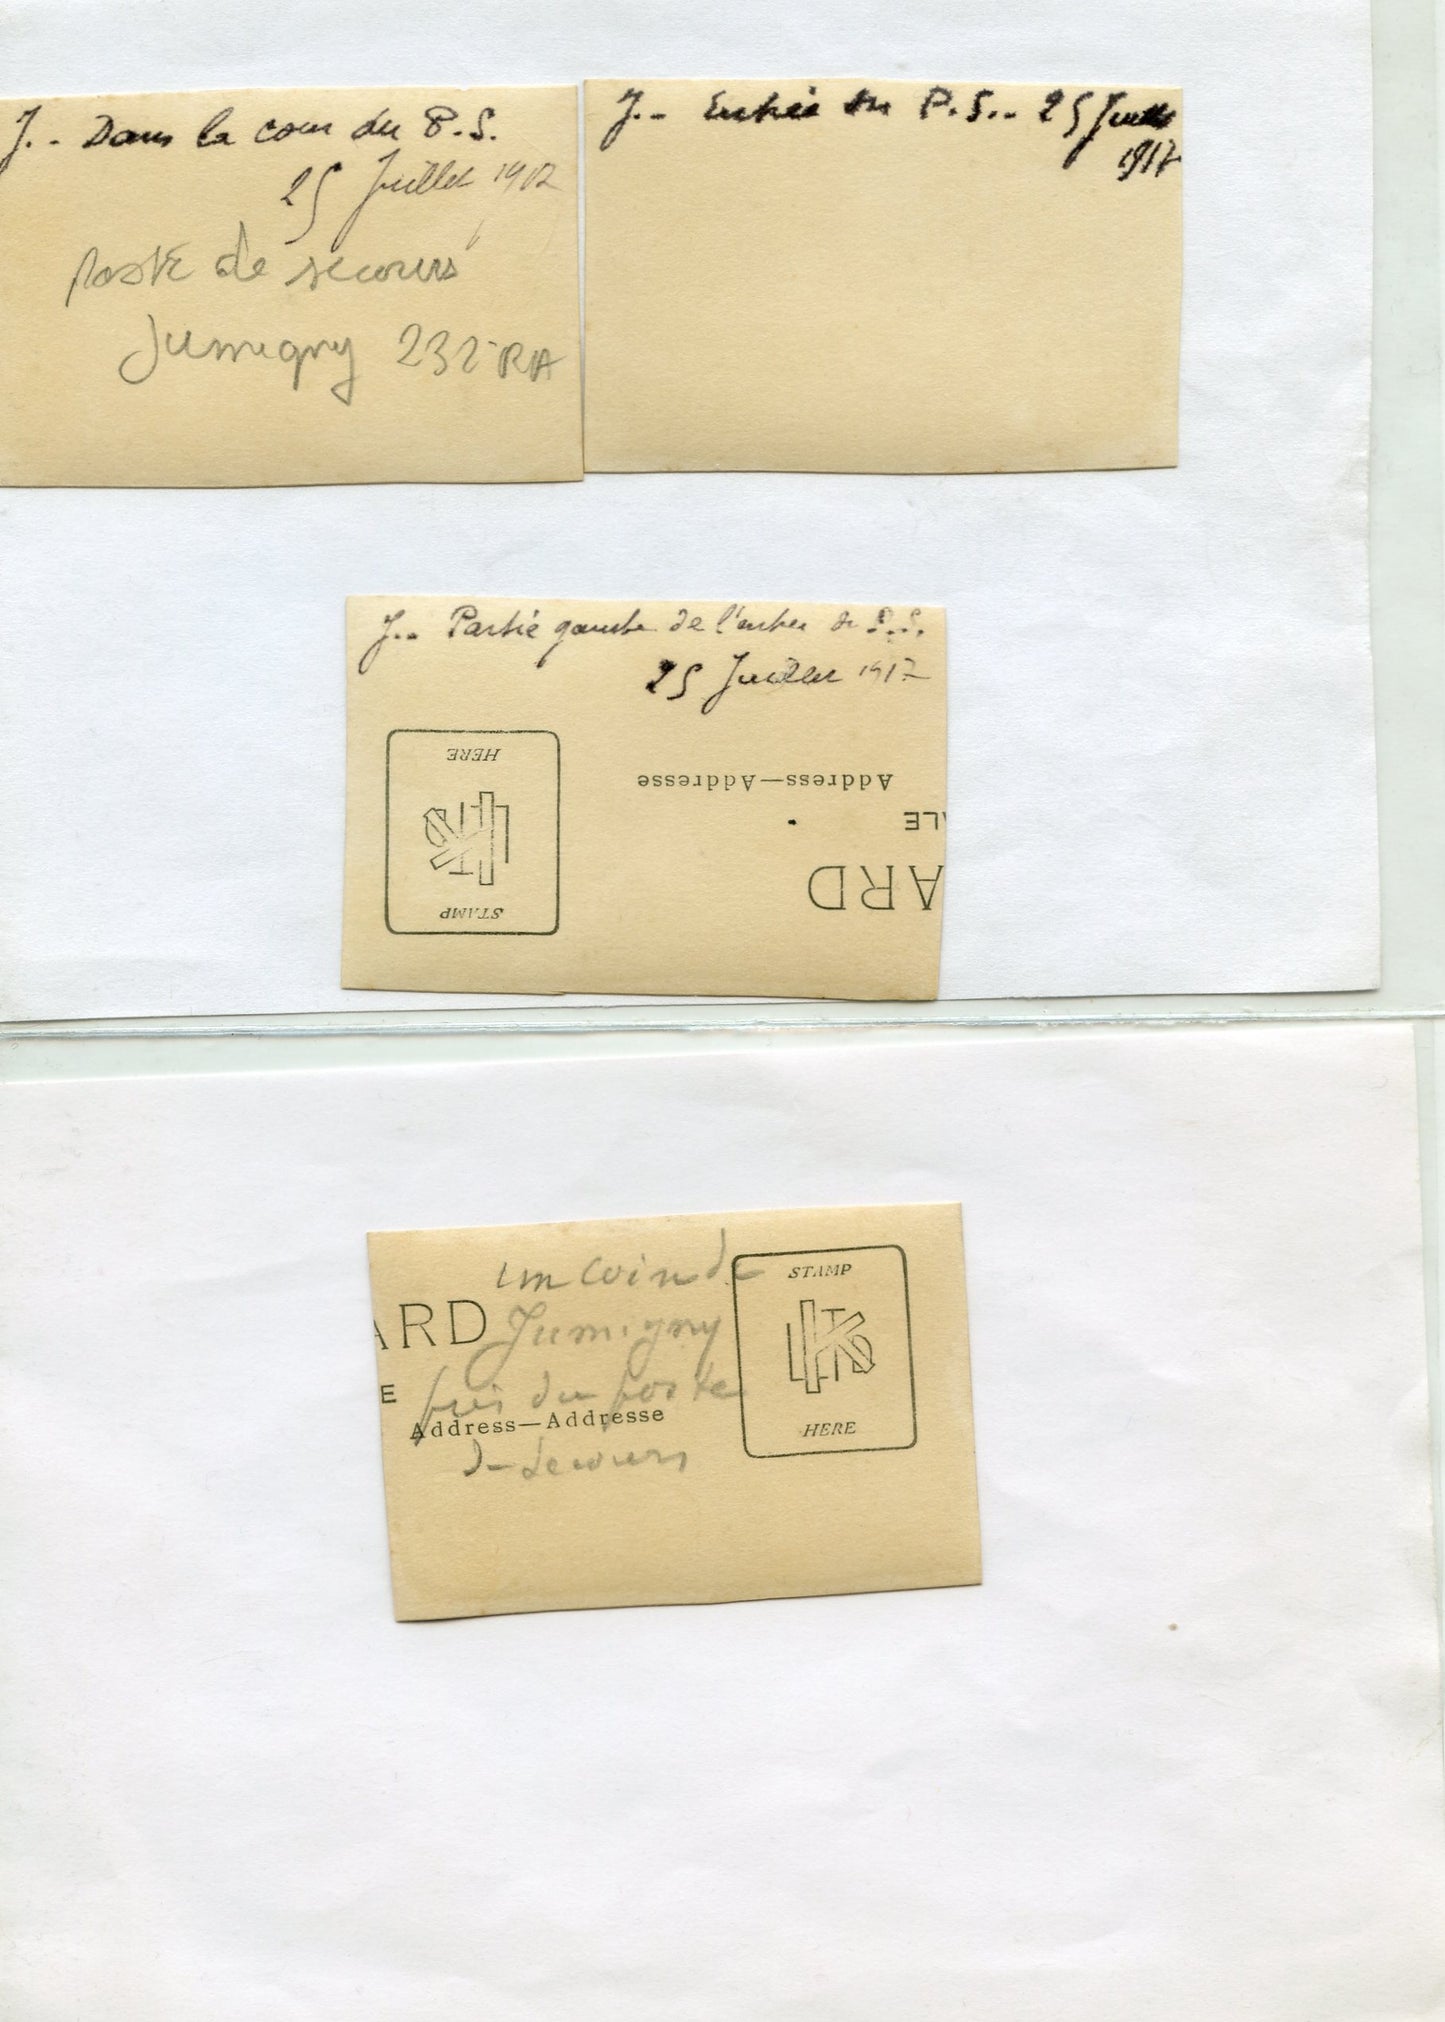 J.- Dans la cour du P.S.
25 Juillet 1917
Poste de secours
Jumigny 232e RA
J.- Entrée du P.S.- 25 Juillet
1917
J.- Partie gauche de l'entrée du P.S.
25 Juillet 1917
HERE
Address—Addresse
LE
STAMP
ARD
un coin de
STAMP
ARD Jumigny
près du poste
E
Address—Addresse
HERE
de secours